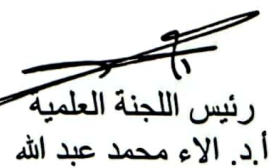 رئيس اللجنة العلمية
أ.د. الاء محمد عبد الله